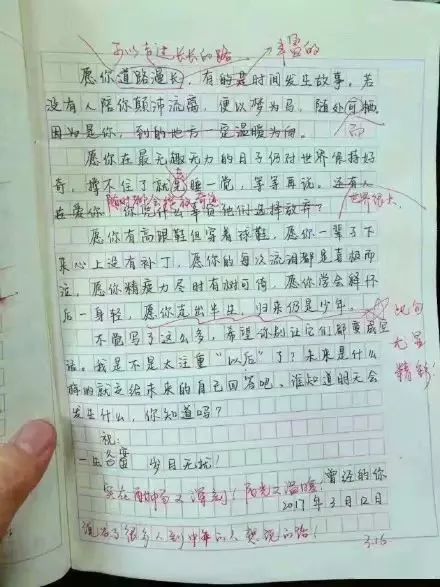 可以走过长长的路
丰富的
愿你道路漫长,有的是时间发生故事。若
没有人陪你颠沛流离,便以梦为马,随处可栖。
因为是你,到的地方一定温暖方向。
而
愿你在最无趣无力的日子仍对世界保持好
奇,撑不住了就先睡一觉,等等再说。还有人
在爱你,你凭什么辜负他们选择放弃?
世界很大
愿你有高跟鞋但穿着球鞋,愿你一辈子下
来心上没有补丁,愿你的每次流泪都是喜极而
泣,愿你精疲力尽时有树可倚,愿你学会释怀
后一身轻,愿你走出半生,归来仍是少年。
此句
无呈
精彩!
不能写了这么多,希望你别让它们都变成空
话。我是不是太注重“以后”了?未来是什么
样的就交给未来的自己回答吧。谁知道明天会
发生什么,你知道吗?
祝:
一生 岁月无扰!
曾经的你
2017年3月12日
实在 又深刻! 又温暖
很多人到中年的人
3.16